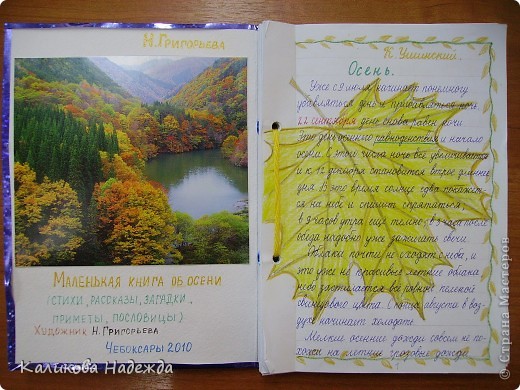 Н. Григорьева
Маленькая книга об осени
(стихи, рассказы, загадки,
приметы, пословицы)
Художник Н. Григорьева
Чебоксары 2010
Каликова Надежда
К. Ушинский.
Осень.
Уже с 9 июля начинает понемногу
убавляться день и прибавляться ночь.
22 сентября день снова равен ночи
Это день осеннего равноденствия и начало
осени. С этого числа ночь всё увеличивается
и к 12 декабря становится вдвое длиннее
дня. В это время солнце едва покажется
на небе и спешит спрятаться.
в 8 часов утра ещё темно, в 3 часа после
обеда надобно уже зажигать свечи.
Облака почти не сходят с неба, и
это уже не красивые летние облака,
небо застилается всё ровною пеленой
свинцового цвета. С конца августа в воз-
духе начинает холодать.
Мелкие осенние дожди совсем не по-
хожи на летние грозовые дожди.
© Страна Мастеров